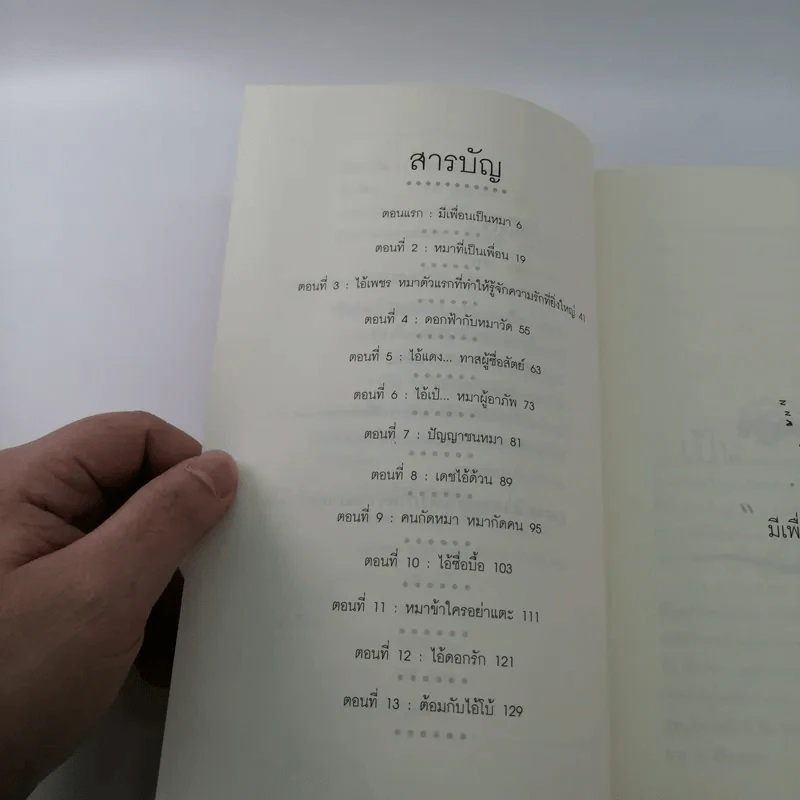 สารบัญ
ตอนแรก : มีเพื่อนเป็นหมา 6
ตอนที่ 2 : หมาที่เป็นเพื่อน 19
ตอนที่ 3 : ไอ้เพชร หมาตัวแรกที่ทำให้รู้จักความรักที่ยิ่งใหญ่ 41
ตอนที่ 4 : ดอกฟ้ากับหมาวัด 55
ตอนที่ 5 : ไอ้แดง... ทาสผู้ซื่อสัตย์ 63
ตอนที่ 6 : ไอ้เป๋... หมาผู้อาภัพ 73
ตอนที่ 7 : ปัญญาชนหมา 81
ตอนที่ 8 : เดชไอ้ด้วน 89
ตอนที่ 9 : คนกัดหมา หมากัดคน 95
ตอนที่ 10 : ไอ้ซื่อบื้อ 103
ตอนที่ 11 : หมาข้าใครอย่าแตะ 111
ตอนที่ 12 : ไอ้ดอกรัก 121
ตอนที่ 13 : ต้อมกับไอ้โบ้ 129